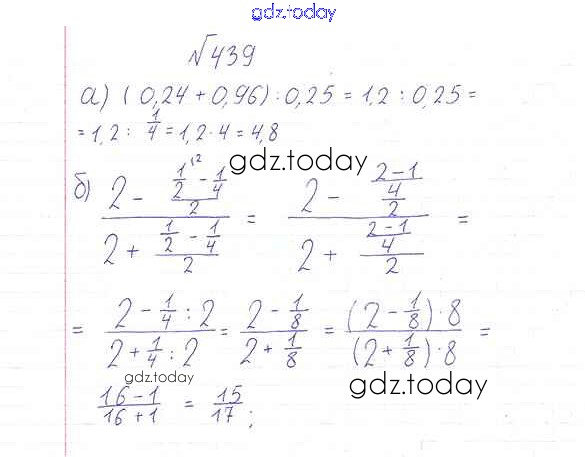 gdz.today
√439
а) (0,24 + 0,96) : 0,25 = 1,2 : 0,25 =
= 1,2 : 1/4 = 1,2 · 4 = 4,8
gdz.today
б) (2 - (1/2 \2 - 1/4)/2)/(2 + (1/2 - 1/4)/2) = (2 - ((2-1)/4)/2)/(2 + ((2-1)/4)/2) =
= (2 - 1/4 : 2)/(2 + 1/4 : 2) = (2 - 1/8)/(2 + 1/8) = ((2 - 1/8) · 8)/((2 + 1/8) · 8) =
gdz.today gdz.today
(16 - 1)/(16 + 1) = 15/17;